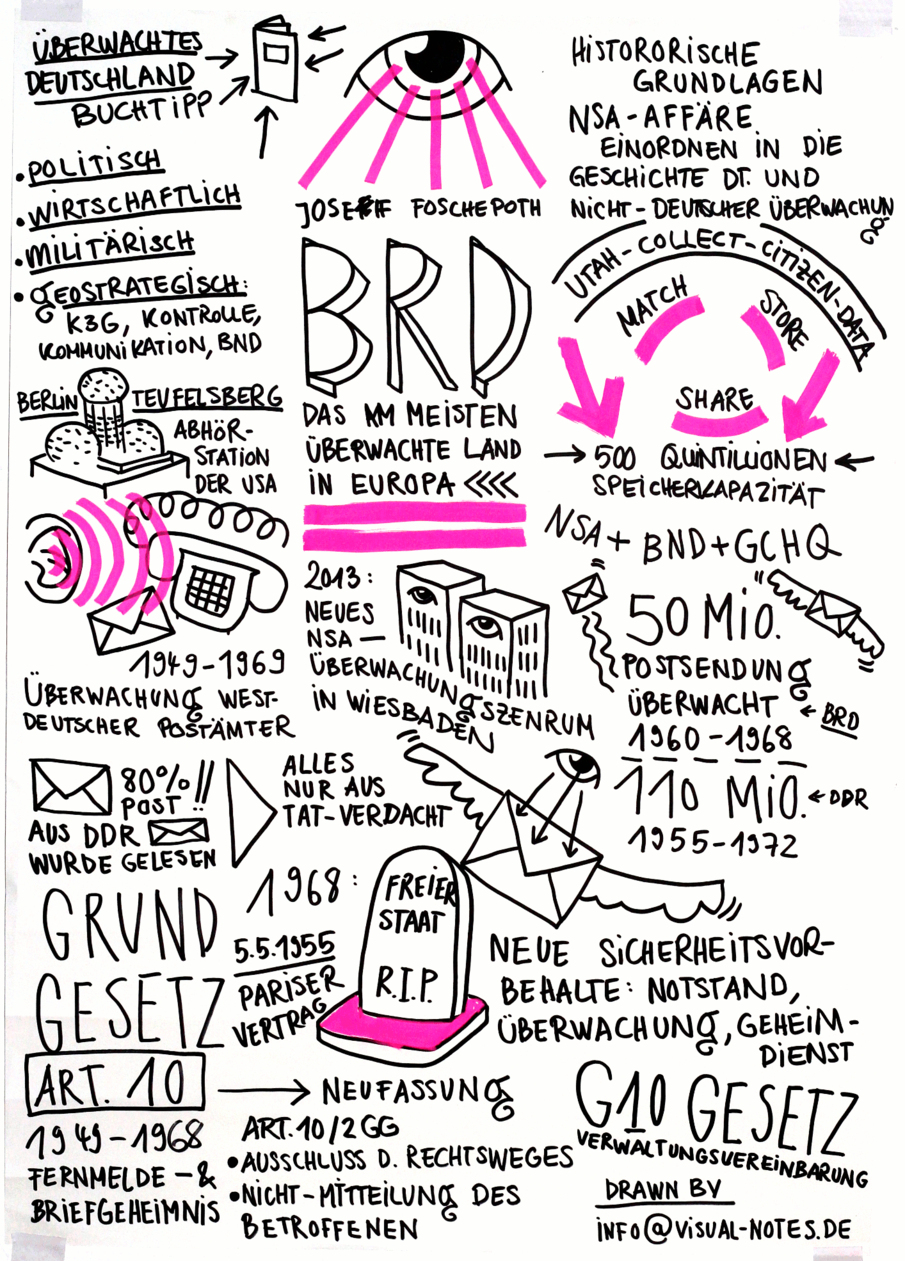 ÜBERWACHTES
DEUTSCHLAND
BUCHTIPP
• POLITISCH
• WIRTSCHAFTLICH
• MILITÄRISCH
• GEOSTRATEGISCH:
K3G, KONTROLLE,
KOMMUNIKATION, BND
JOSEF FOSCHEPOTH
HISTORORISCHE
GRUNDLAGEN
NSA-AFFÄRE
EINORDNEN IN DIE
GESCHICHTE DT. UND
NICHT-DEUTSCHER ÜBERWACHUNG
UTAH-COLLECT-CITIZEN-DATA
MATCH
STORE
SHARE
500 QUINTILLIONEN
SPEICHERKAPAZITÄT
BRD
DAS AM MEISTEN
ÜBERWACHTE LAND
IN EUROPA
BERLIN TEUFELSBERG
ABHÖR-
STATION
DER USA
1949-1969
ÜBERWACHUNG WEST-
DEUTSCHER POSTÄMTER
2013:
NEUES
NSA-
ÜBERWACHUNGSZENRUM
IN WIESBADEN
NSA + BND + GCHQ
50 MIO.
POSTSENDUNG
ÜBERWACHT
BRD
1960-1968
110 MIO.
DDR
1955-1972
80% !!
POST
AUS DDR
WURDE GELESEN
ALLES
NUR AUS
TAT-VERDACHT
1968:
5.5.1955
PARISER
VERTRAG
FREIER
STAAT
R.I.P.
NEUE SICHERHEITSVOR-
BEHALTE: NOTSTAND,
ÜBERWACHUNG, GEHEIM-
DIENST
GRUND
GESETZ
ART. 10
1949-1968
FERNMELDE-&
BRIEFGEHEIMNIS
NEUFASSUNG
ART. 10/2 GG
• AUSSCHLUSS D. RECHTSWEGES
• NICHT-MITTEILUNG DES
BETROFFENEN
G10 GESETZ
VERWALTUNGSVEREINBARUNG
DRAWN BY
INFO@VISUAL-NOTES.DE